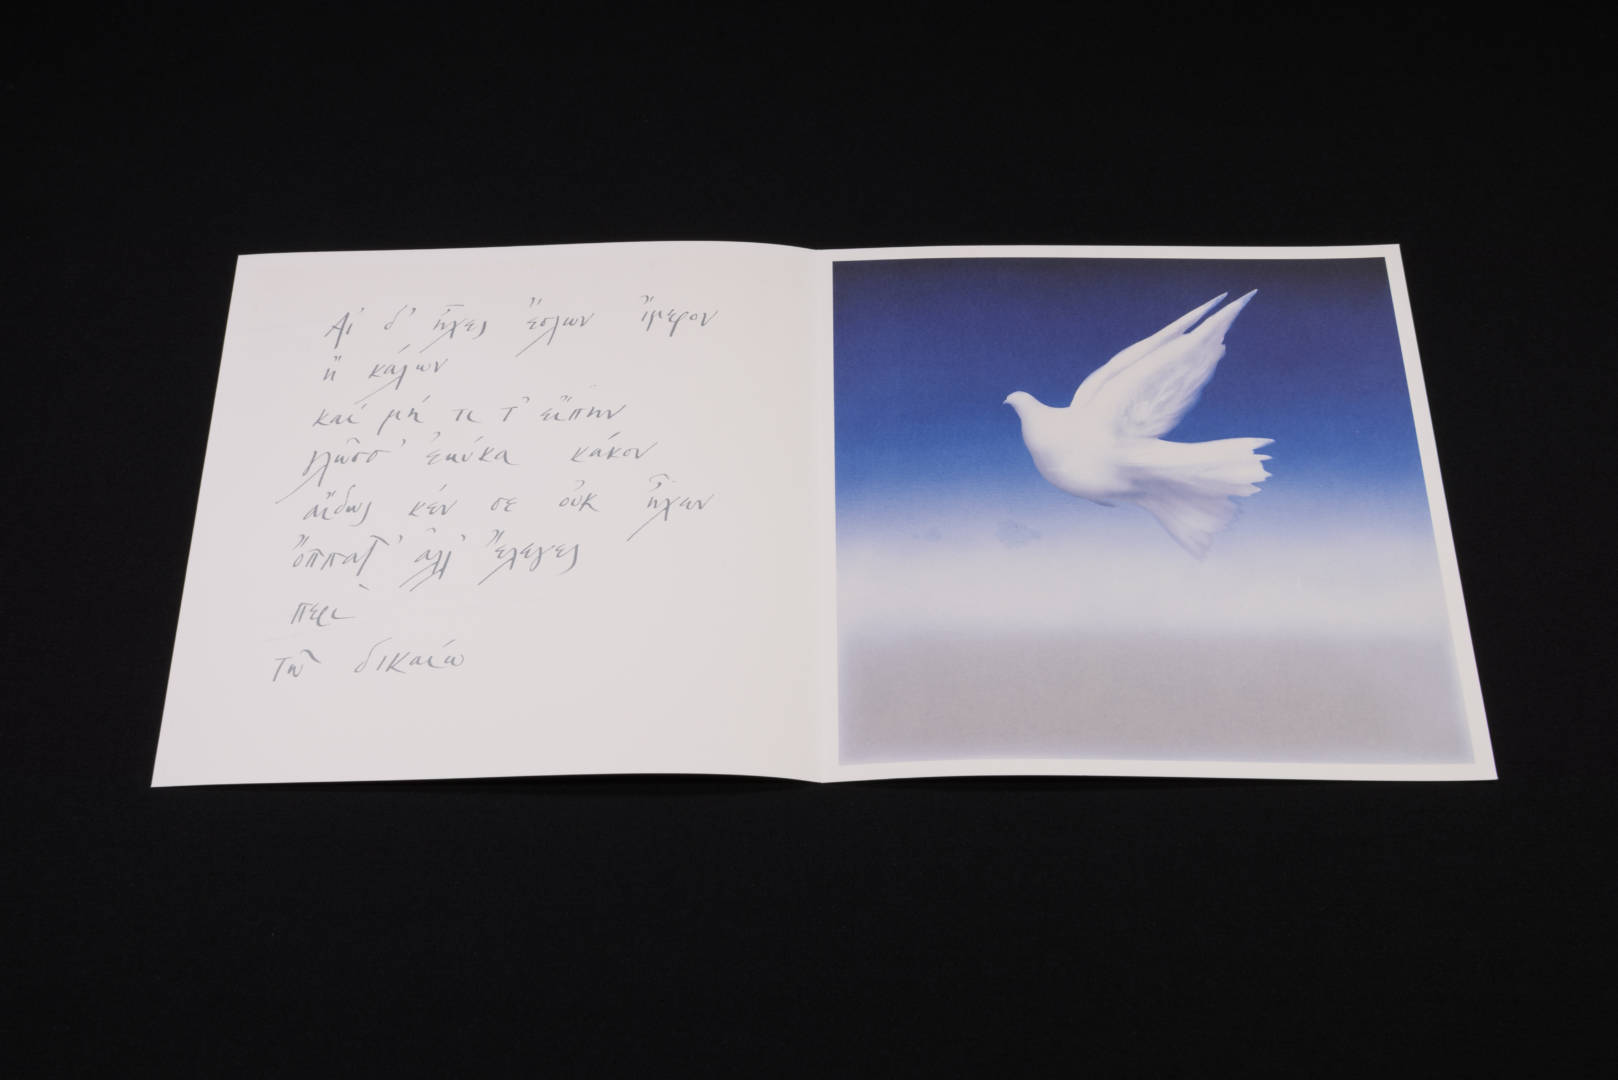 Αἰ δ' ἦχες ἔσλων ἴμερον
ἢ κάλων
καὶ μή τι τ' εἴπην
γλῶσσ' ἐκύκα κάκον
αἴδως κέν σε οὐκ ἦχεν
ὄππατ' ἀλλ' ἔλεγες
περὶ
τῶ δικαίω